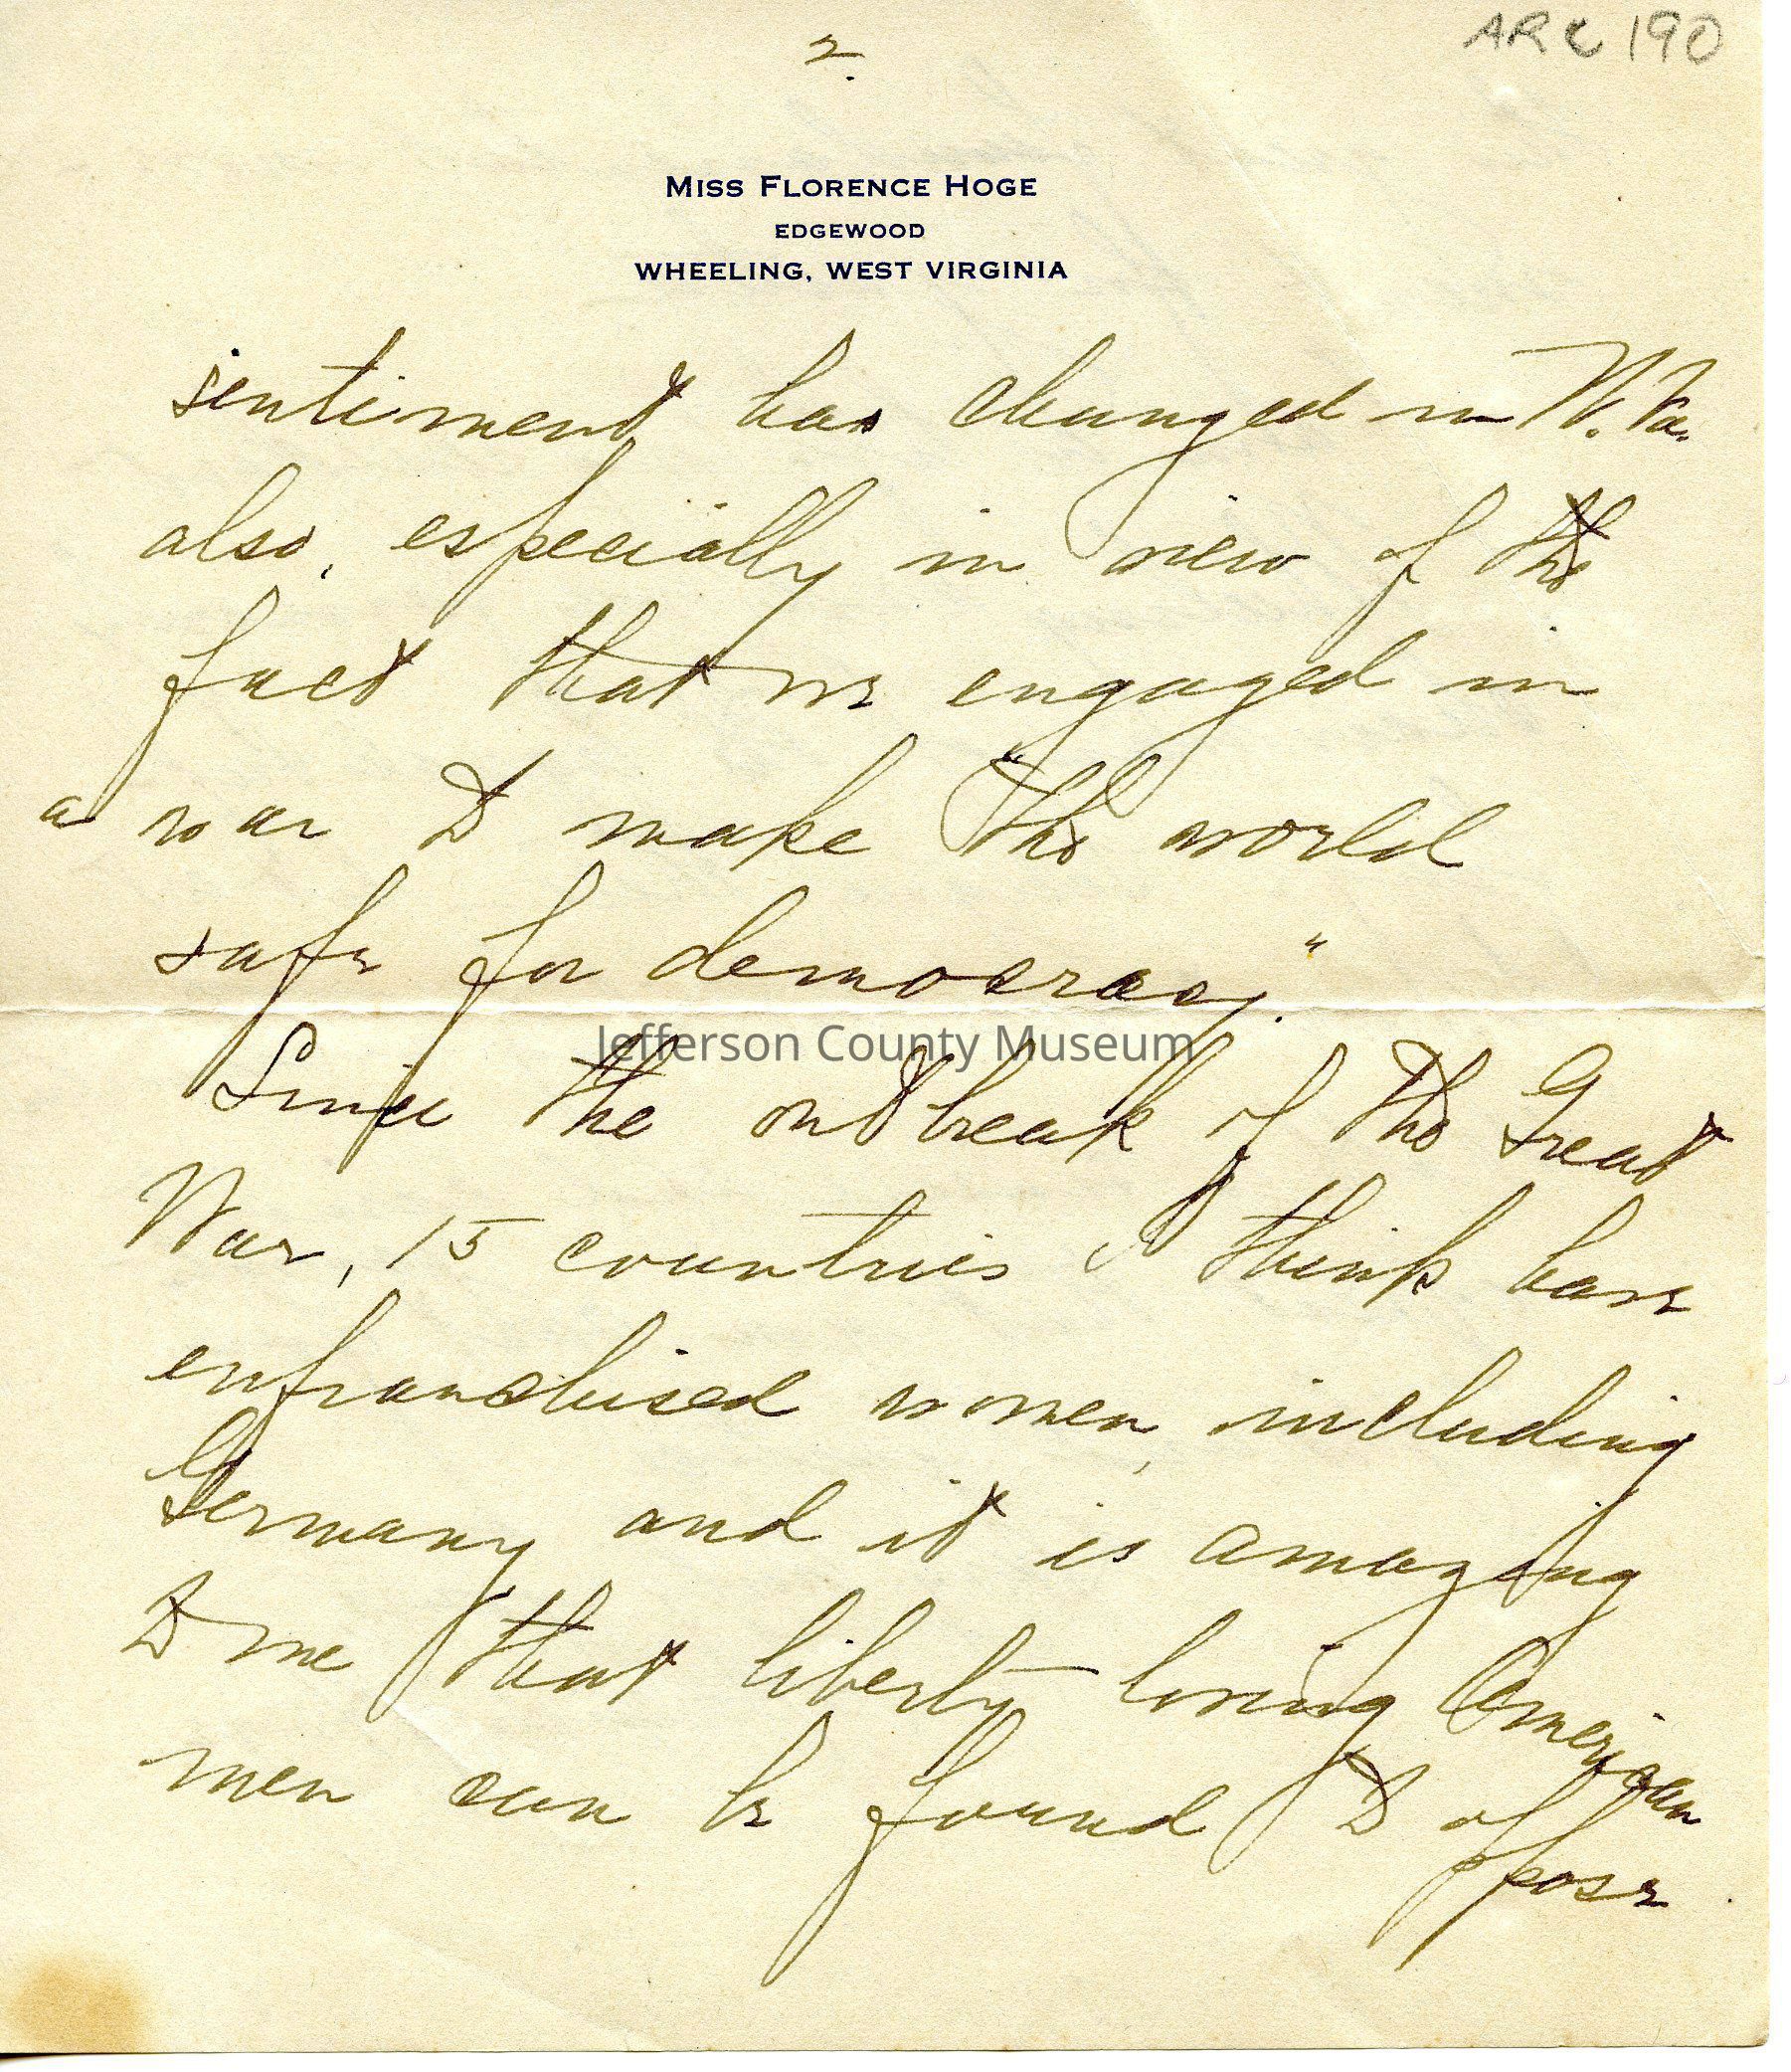 2.
ARC 190
MISS FLORENCE HOGE
EDGEWOOD
WHEELING, WEST VIRGINIA
sentiment has changed in W. Va.
also, especially in view of the
fact that we engaged in
a war to make "the world
safe for democracy."
Jefferson County Museum
Since the outbreak of the Great
War, 15 countries I think have
enfranchised women, including
Germany and it is amazing
to me that liberty-loving American
men can be found to oppose